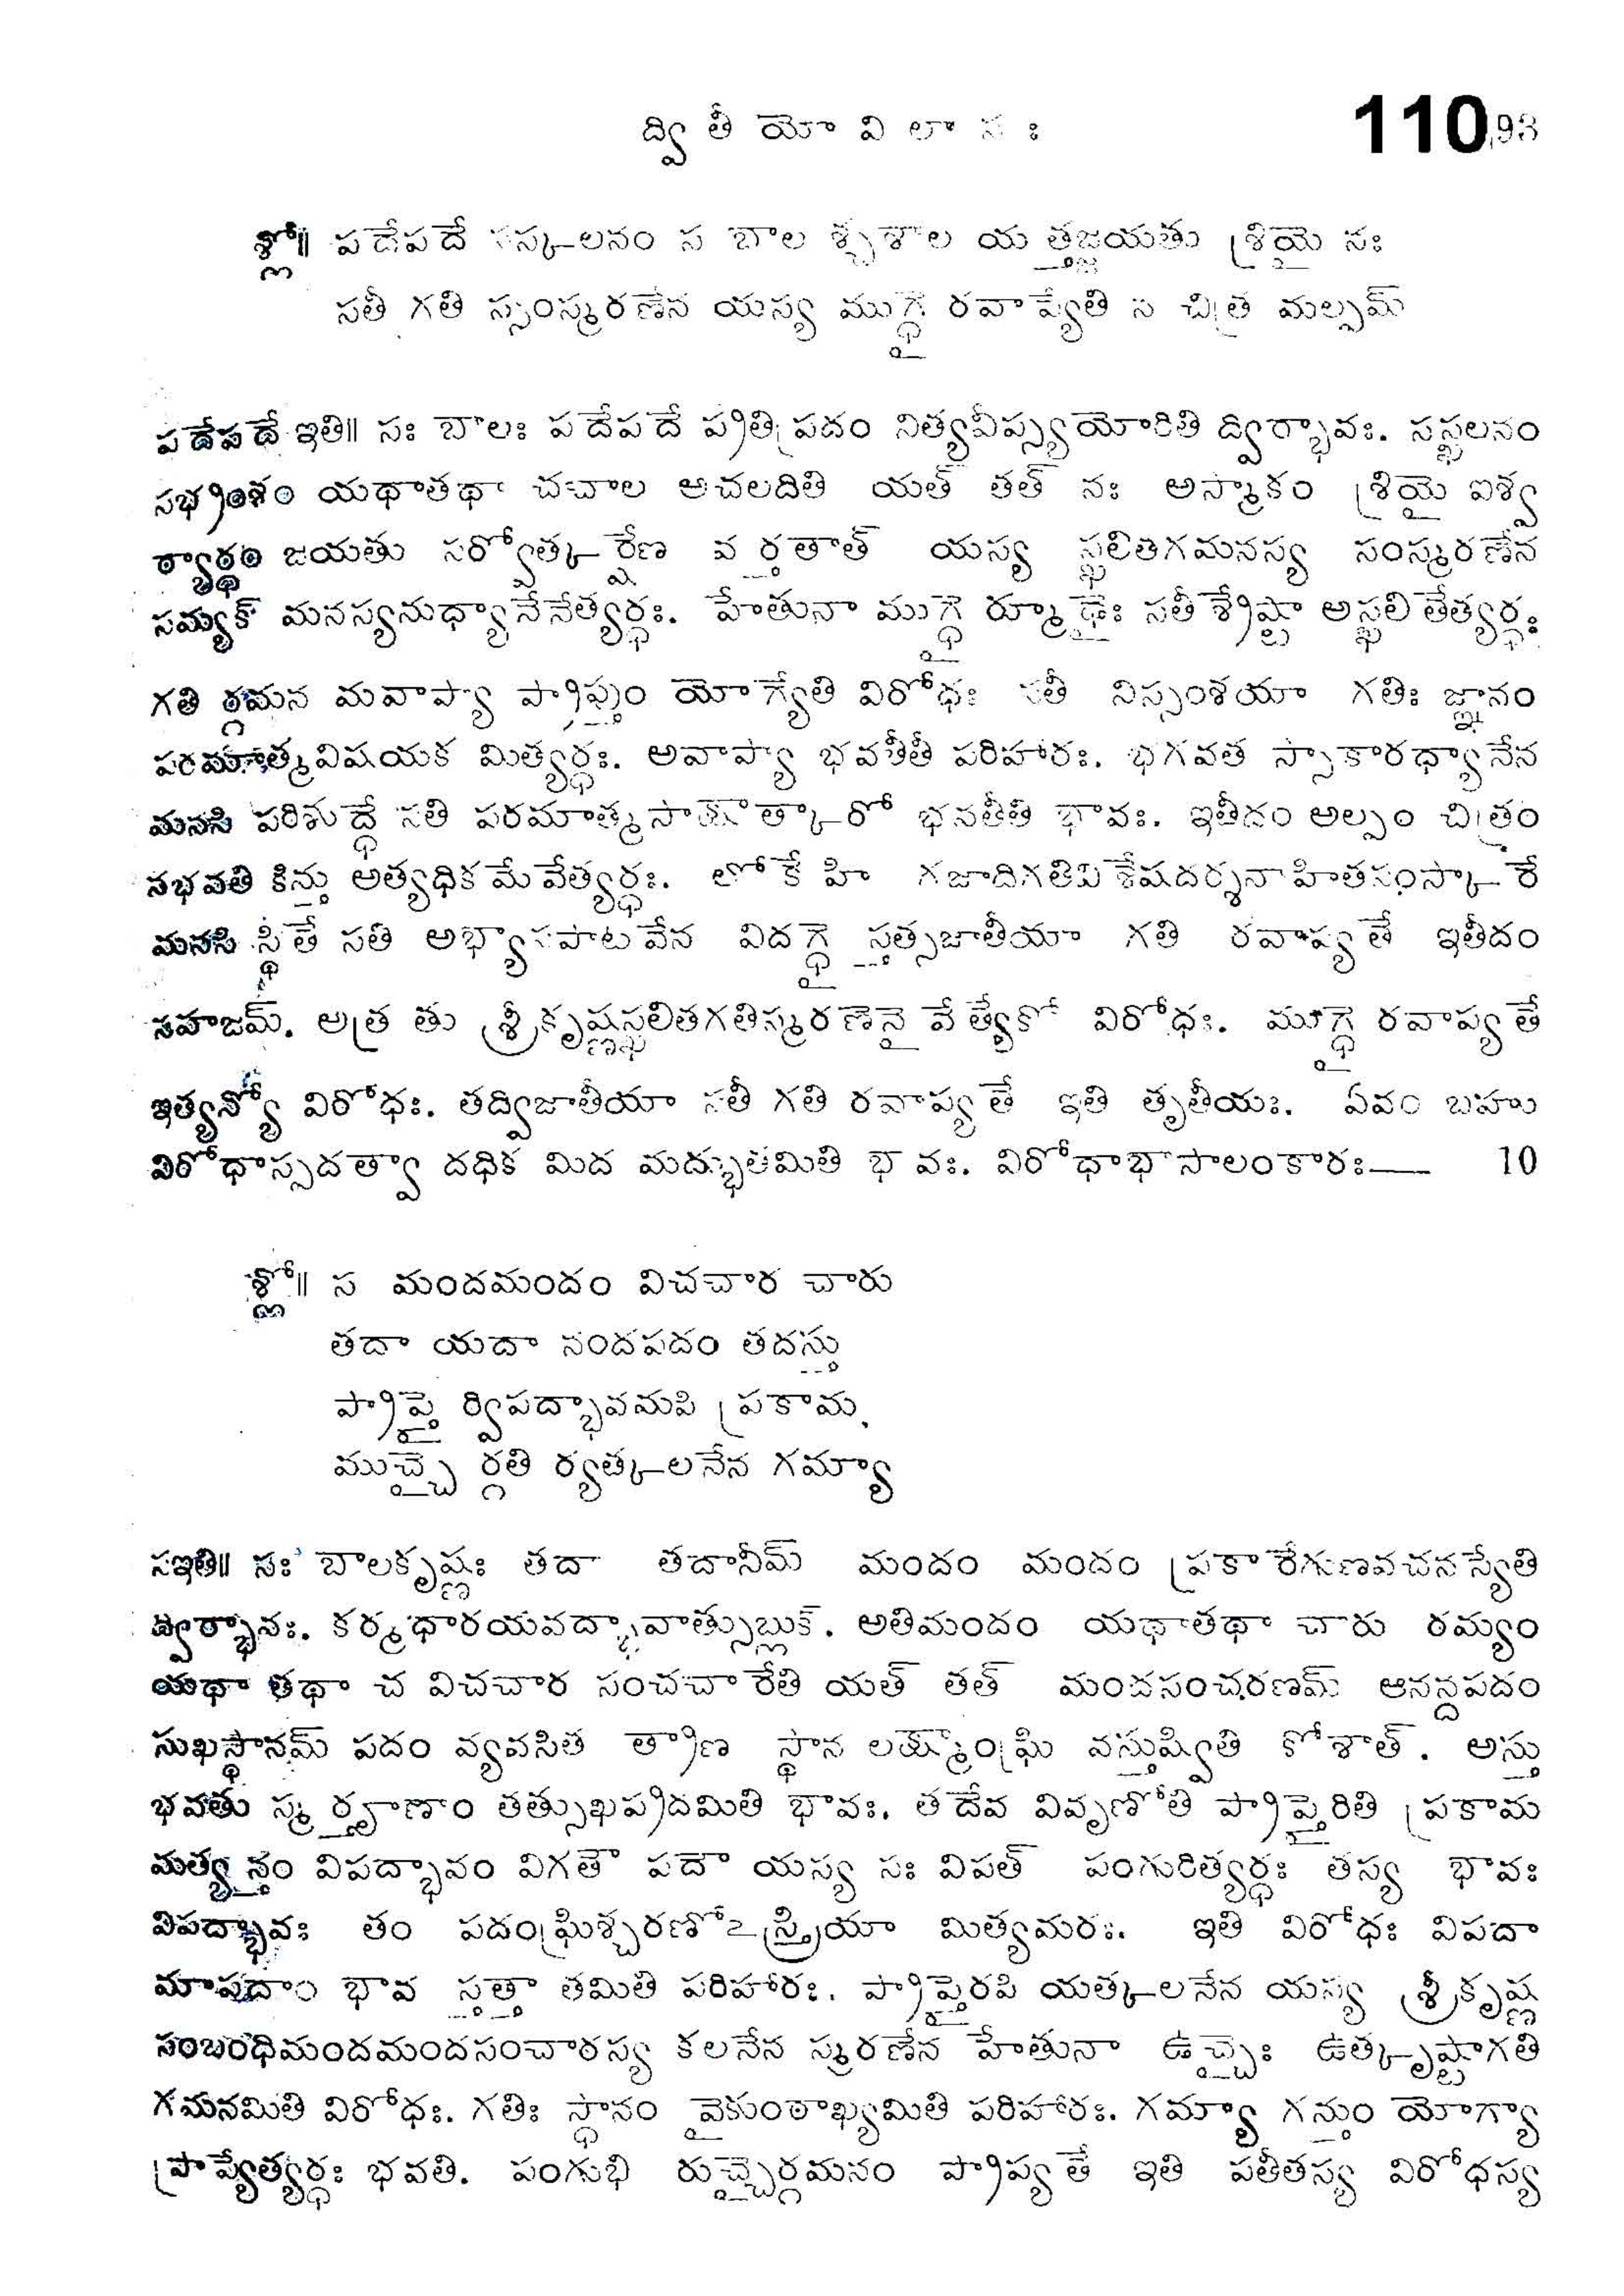 ద్వితీయో విలాసః 110 93
శ్లో॥ పదేపదే సస్కలనం స బాల శ్చచాల య త్తజ్జయతు శ్రియై నః
సతీ గతి స్సంస్మరణేన యస్య ముగ్ధై రవాప్యేతి న చిత్ర మల్పమ్
పదేపదే ఇతి॥ సః బాలః పదేపదే ప్రతిపదం నిత్యవీప్స్యయోరితి ద్విర్భావః. సస్ఖలనం
సభ్రంశం యథాతథా చచాల అచలదితి యత్ తత్ నః అస్మాకం శ్రియై ఐశ్వ
ర్యార్థం జయతు సర్వోత్కర్షేణ వర్తతాత్ యస్య స్ఖలితగమనస్య సంస్మరణేన
సమ్యక్ మనస్యనుధ్యానేనేత్యర్థః. హేతునా ముగ్ధై ర్మూఢైః సతీ శ్రేష్టా అస్ఖలితేత్యర్థః
గతి ర్గమన మవాప్యా ప్రాప్తుం యోగ్యేతి విరోధః సతీ నిస్సంశయా గతిః జ్ఞానం
పరమాత్మవిషయక మిత్యర్థః. అవాప్యా భవతీతీ పరిహారః. భగవత స్సాకారధ్యానేన
మనసి పరిశుద్ధే సతి పరమాత్మసాక్షాత్కారో భవతీతి భావః. ఇతీదం అల్పం చిత్రం
నభవతి కిన్తు అత్యధికమేవేత్యర్థః. లోకే హి గజాదిగతివిశేషదర్శనాహితసంస్కారే
మనసి స్థితే సతి అభ్యాసపాటవేన విదగ్ధై స్తత్సజాతీయా గతి రవాప్యతే ఇతీదం
సహజమ్. అత్ర తు శ్రీకృష్ణస్ఖలితగతిస్మరణెనై వేత్యేకో విరోధః. ముగ్ధై రవాప్యతే
ఇత్యన్యో విరోధః. తద్విజాతీయా సతీ గతి రవాప్యతే ఇతి తృతీయః. ఏవం బహు
విరోధాస్పదత్వా దధిక మిద మద్భుతమితి భావః. విరోధాభాసాలంకారః— 10
శ్లో॥ స మందమందం విచచార చారు
తదా యదా నందపదం తదస్తు
ప్రాప్తై ర్విపద్భావమపి ప్రకామ
ముచ్చై ర్గతి ర్యత్కలనేన గమ్యా
సఇతి॥ సః బాలకృష్ణః తదా తదానీమ్ మందం మందం ప్రకారేగుణవచనస్యేతి
ద్విర్భావః. కర్మధారయవద్భావాత్సుబ్లుక్. అతిమందం యథాతథా చారు రమ్యం
యథా తథా చ విచచార సంచచారేతి యత్ తత్ మందసంచరణమ్ ఆనన్దపదం
సుఖస్థానమ్ పదం వ్యవసిత త్రాణ స్థాన లక్ష్మాంఘ్రి వస్తుష్వితి కోశాత్. అస్తు
భవతు స్మర్తౄణాం తత్సుఖప్రదమితి భావః. తదేవ వివృణోతి ప్రాప్తైరితి ప్రకామ
మత్యన్తం విపద్భావం విగతౌ పదౌ యస్య సః విపత్ పంగురిత్యర్థః తస్య భావః
విపద్భావః తం పదంఘ్రిశ్చరణోఽస్త్రియా మిత్యమరః. ఇతి విరోధః విపదా
మాపదాం భావ స్సత్తా తమితి పరిహారః. ప్రాప్తైరపి యత్కలనేన యస్య శ్రీకృష్ణ
సంబంధిమందమందసంచారస్య కలనేన స్మరణేన హేతునా ఉచ్చైః ఉత్కృష్టాగతి
గమనమితి విరోధః. గతిః స్థానం వైకుంఠాఖ్యమితి పరిహారః. గమ్యా గన్తుం యోగ్యా
ప్రాప్యేత్యర్థః భవతి. పంగుభి రుచ్చైర్గమనం ప్రాప్యతే ఇతి పతీతస్య విరోధస్య